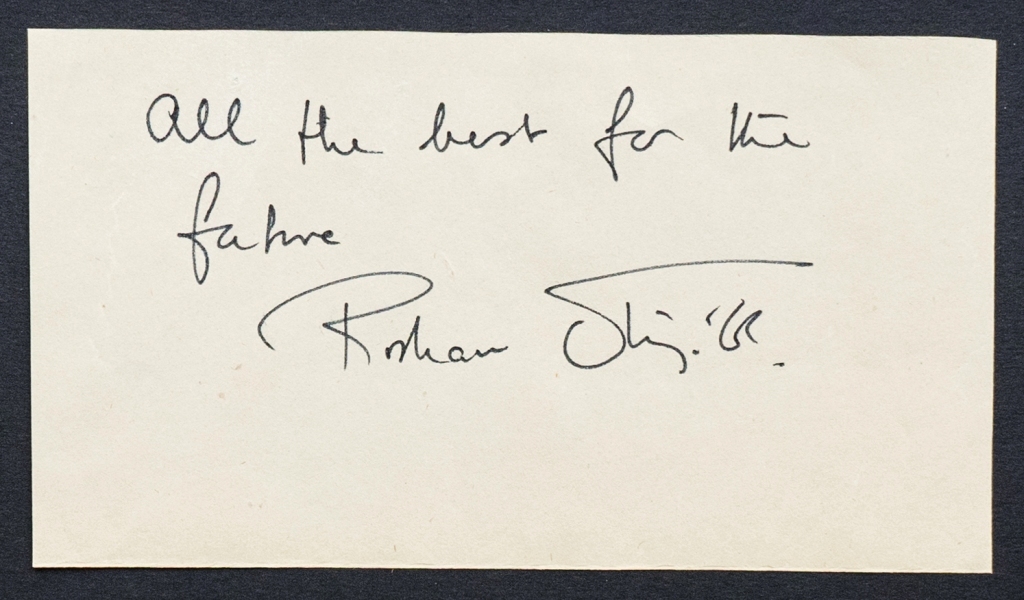 All the best for the
future
Roshan